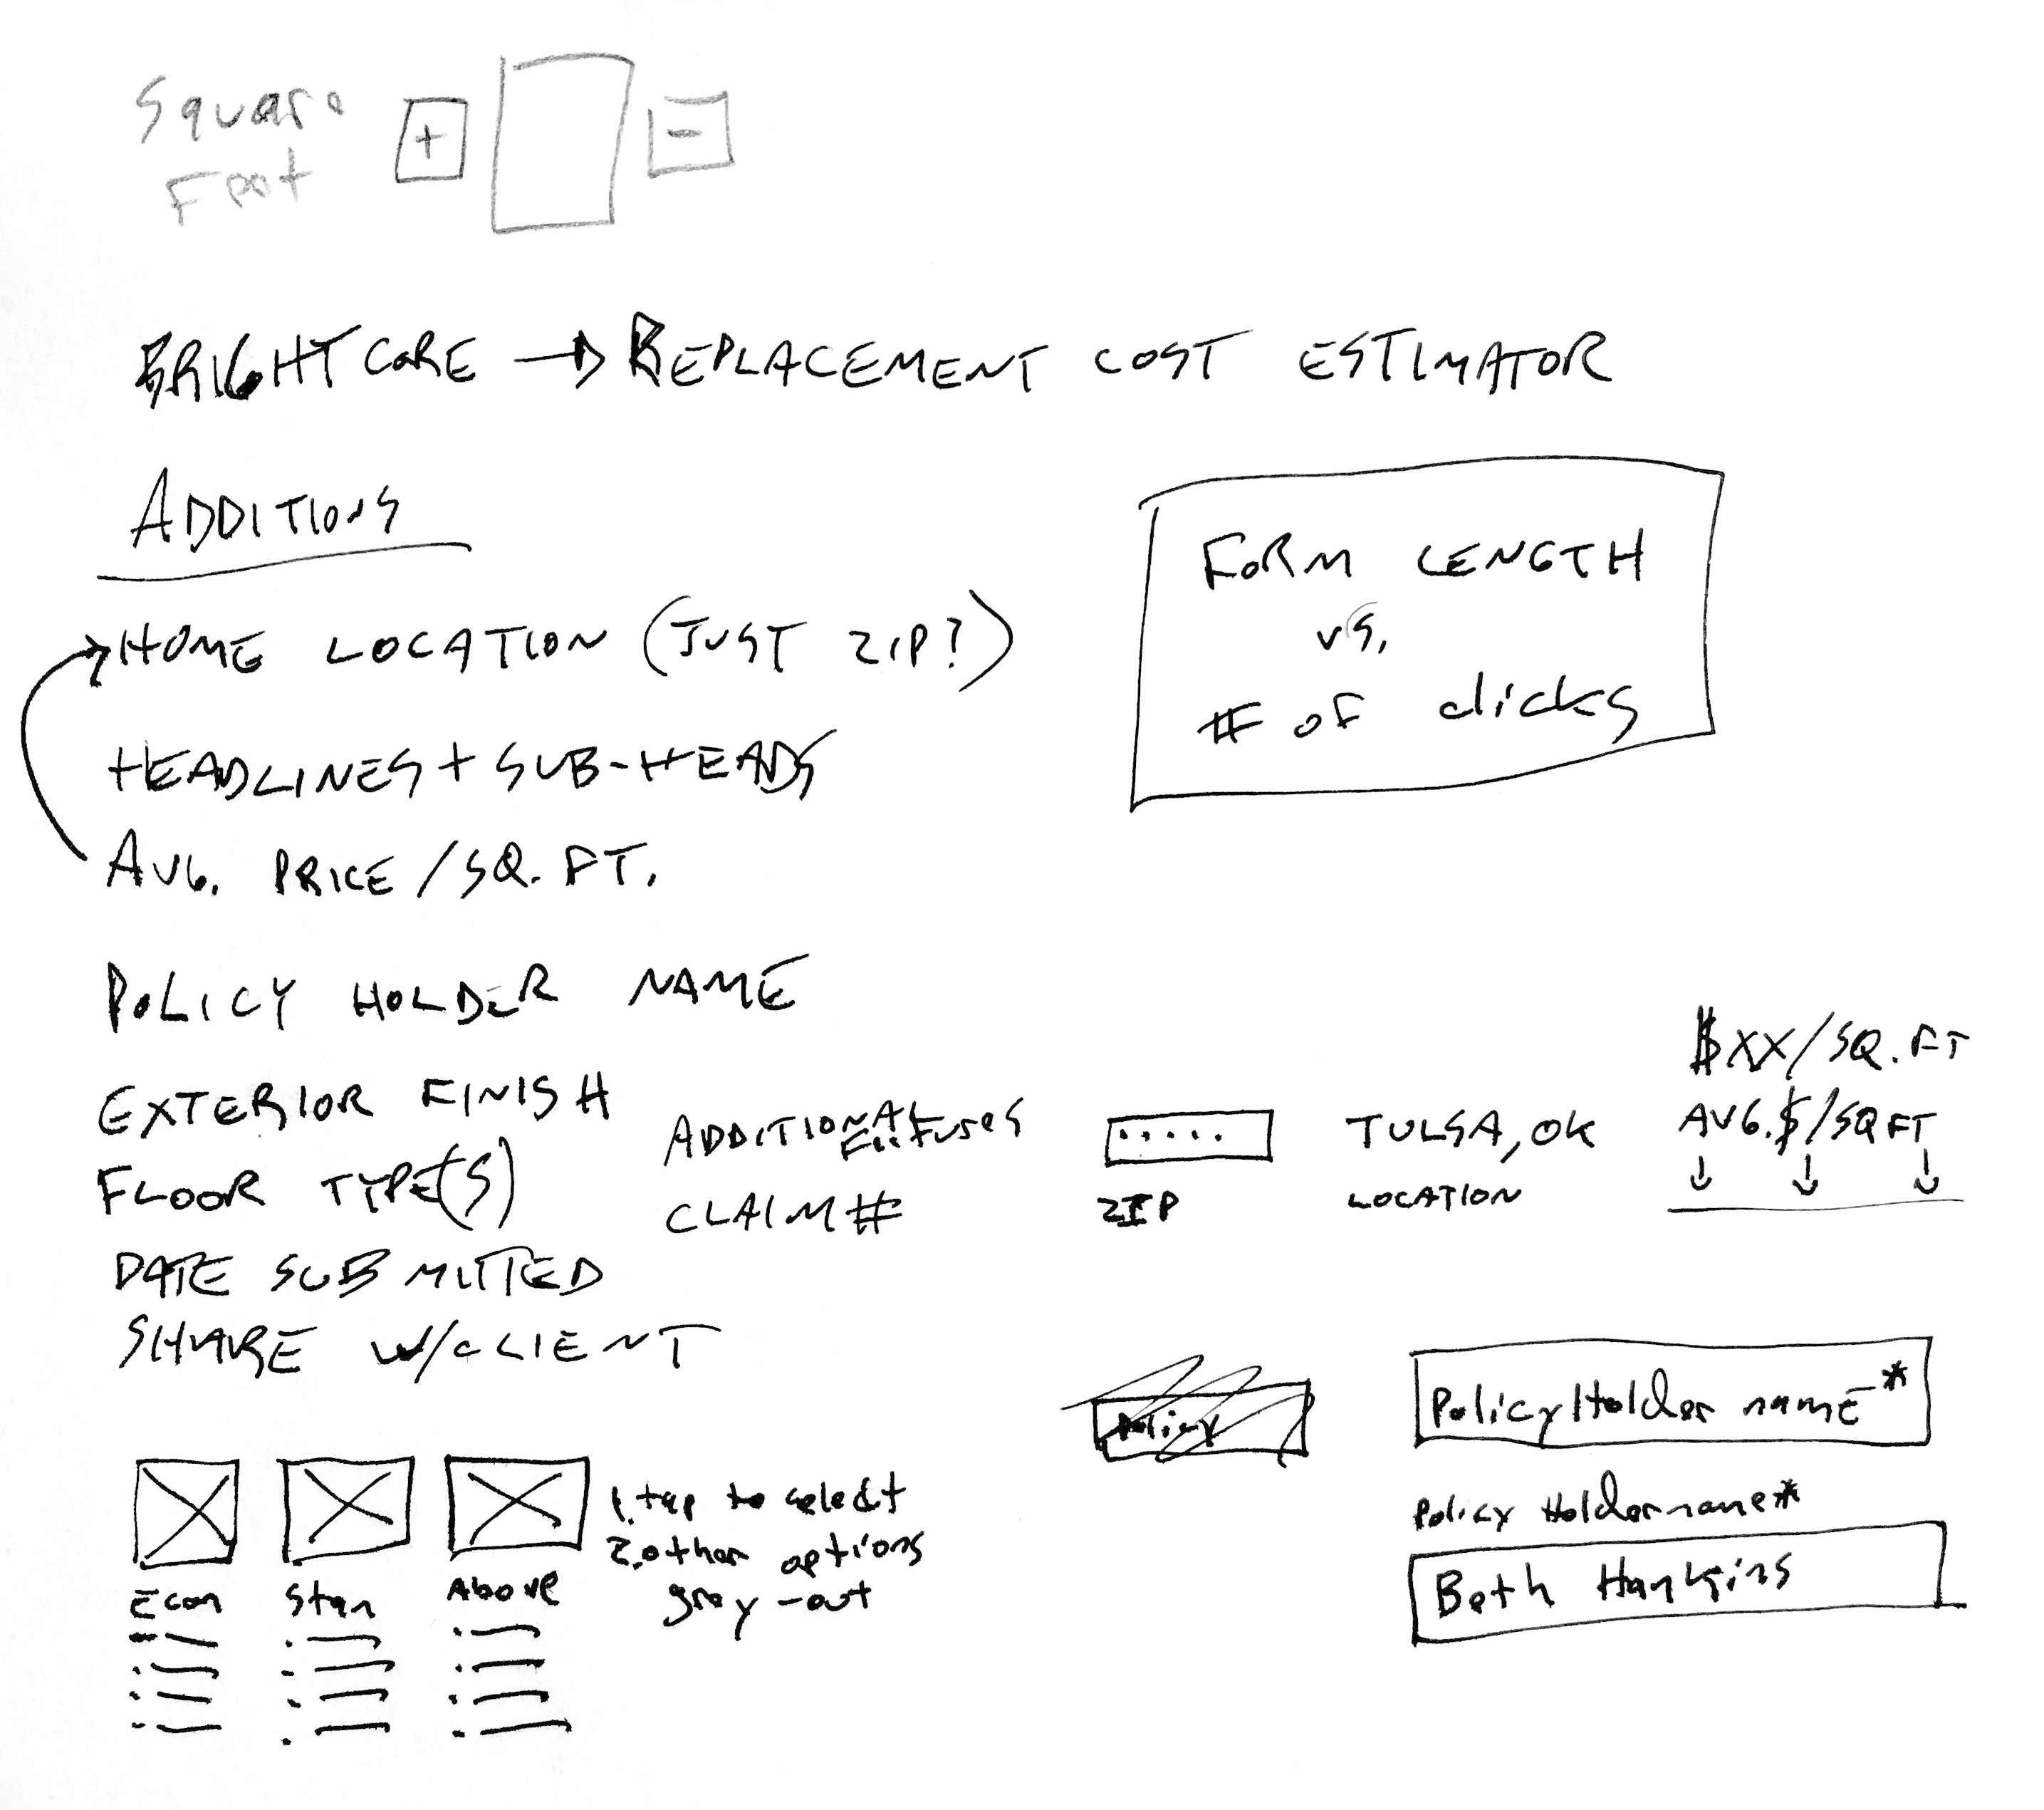 Square
Foot
+
-
BRIGHTCORE → REPLACEMENT COST ESTIMATOR
ADDITIONS
HOME LOCATION (JUST ZIP?)
HEADLINES + SUB-HEADS
AVG. PRICE/SQ. FT.
FORM LENGTH
VS.
# OF clicks
POLICY HOLDER NAME
EXTERIOR FINISH
FLOOR TYPE(S)
DATE SUBMITTED
SHARE W/CLIENT
ADDITIONAL
CLAIM #
.....
ZIP
TULSA, OK
LOCATION
$XX/SQ. FT
AVG. $/SQ FT
↓ ↓ ↓
Policy
Policy Holder name*
Policy Holder name*
Beth Hankins
Econ
Stan
Above
1. tap to select
2. other options
gray-out